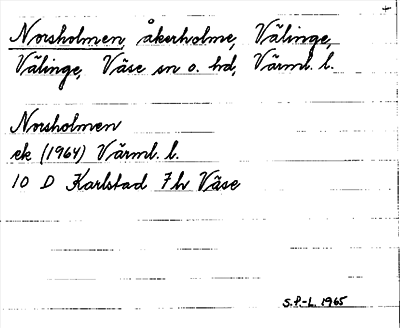 Norsholmen, åkerholme, Välinge,
Välinge, Väse sn o. hd, Värml. l.
Norsholmen
ek (1964) Värml. l.
10 D Karlstad 7h Väse
S.P.-L. 1965